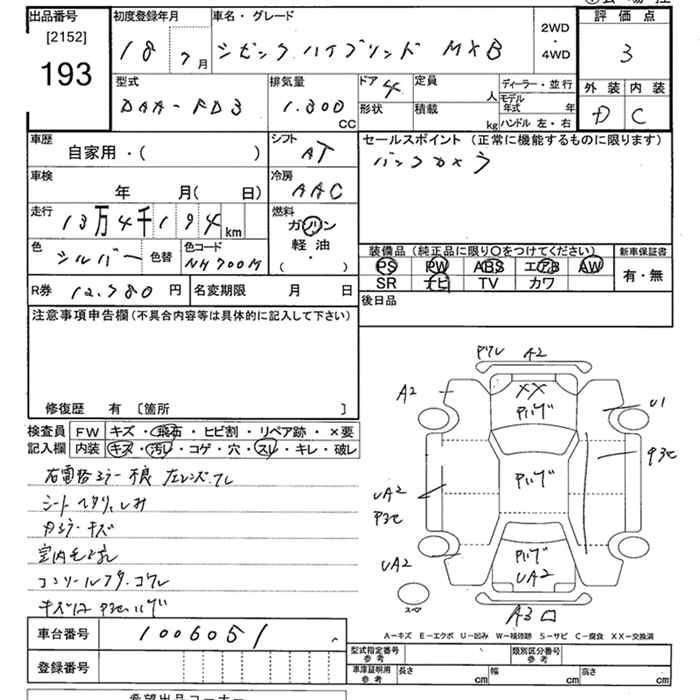 出品番号
[2152]
193
初度登録年月
18 7月
車名・グレード
シビック ハイブリッド MXB
2WD
4WD
評価点
3
外装 内装
D C
型式
DAA-FD3
排気量
1.300 CC
ドア 4
形状
定員 人
積載 kg
ディーラー・並行
モデル年式 年
ハンドル 左・右
車歴
自家用・( )
シフト
AT
セールスポイント(正常に機能するものに限ります)
バックカメラ
車検
年 月( 日)
冷房
AAC
走行
13万4千194km
燃料
ガソリン
軽油
( ・ )
色
シルバー
色替
色コード
NH700M
装備品(純正品に限り○をつけてください)
PS PW ABS エアB AW
SR ナビ TV カワ
新車保証書
有・無
R券 12.780円
名変期限 月 日
後日品
注意事項申告欄(不具合内容等は具体的に記入して下さい)
修復歴 有 〔箇所 〕
検査員 FW キズ・飛石・ヒビ割・リペア跡・×要
記入欄 内装 キズ・汚レ・コゲ・穴・スレ・キレ・破レ
右電格ミラー不良 左レンズワレ
シートヘタリ、しみ
ドアミラーキズ
室内モケ汚
コンソールフタ.コワレ
A2
ワレ A2
XX
U1
UA2
UA2
UA2
A3
スペア
A-キズ E-エクボ U-凹み W-補修跡 S-サビ C-腐食 XX-交換済
車台番号 1006051
登録番号
型式指定番号 参考
類別区分番号 参考
車庫証明用 参考 長さ cm 幅 cm 高さ cm
希望出品コーナー